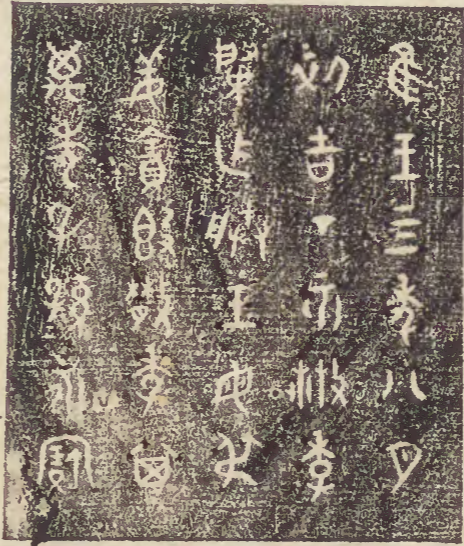 隹王四年八月
初吉丁亥散季
肇乍朕王母叔
姜寶𣪘散季其
萬年子孫永寶